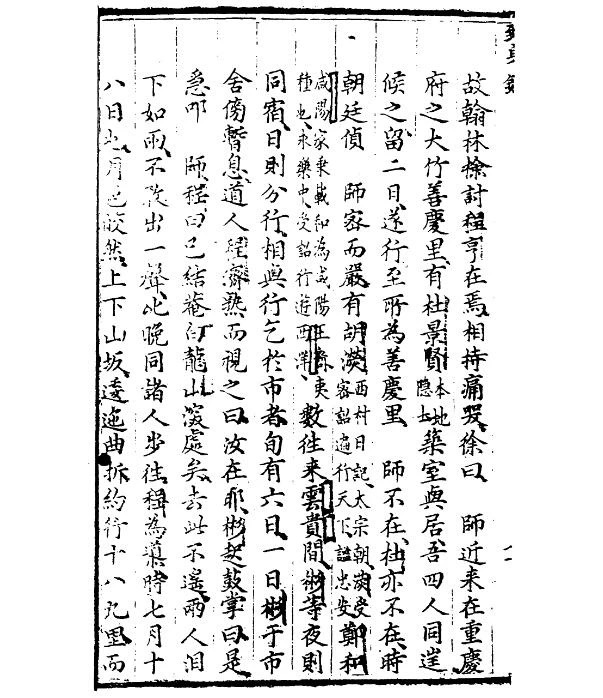 致身錄
故翰林檢討程亨在焉相持痛哭徐曰 師近来在重慶
府之大竹善慶里有杜景賢本地隐士築室與居吾四人同逞
候之留二日遂行至所為善慶里 師不在杜亦不在時
朝廷偵 師宻而嚴有胡濙西村日記太宗朝濙受宻詔遍行天下訪忠安鄭和
咸陽家乗載和為咸陽王裔夷種也永樂中受詔行遊西洋數往来雲貴間彬等夜則
同宿日則分行相與行乞於市者旬有六日一日彬于市
舍傍暫息道人程濟熟而視之曰汝在耶彬起鼓掌曰是
急叩 師程曰已結菴白龍山深處矣去此不遙兩人泪
下如雨不敢出一聲此晚同諸人步往稱為藥時七月十
八日也月色皎然上下山坂逶迤曲折約行十八九里而